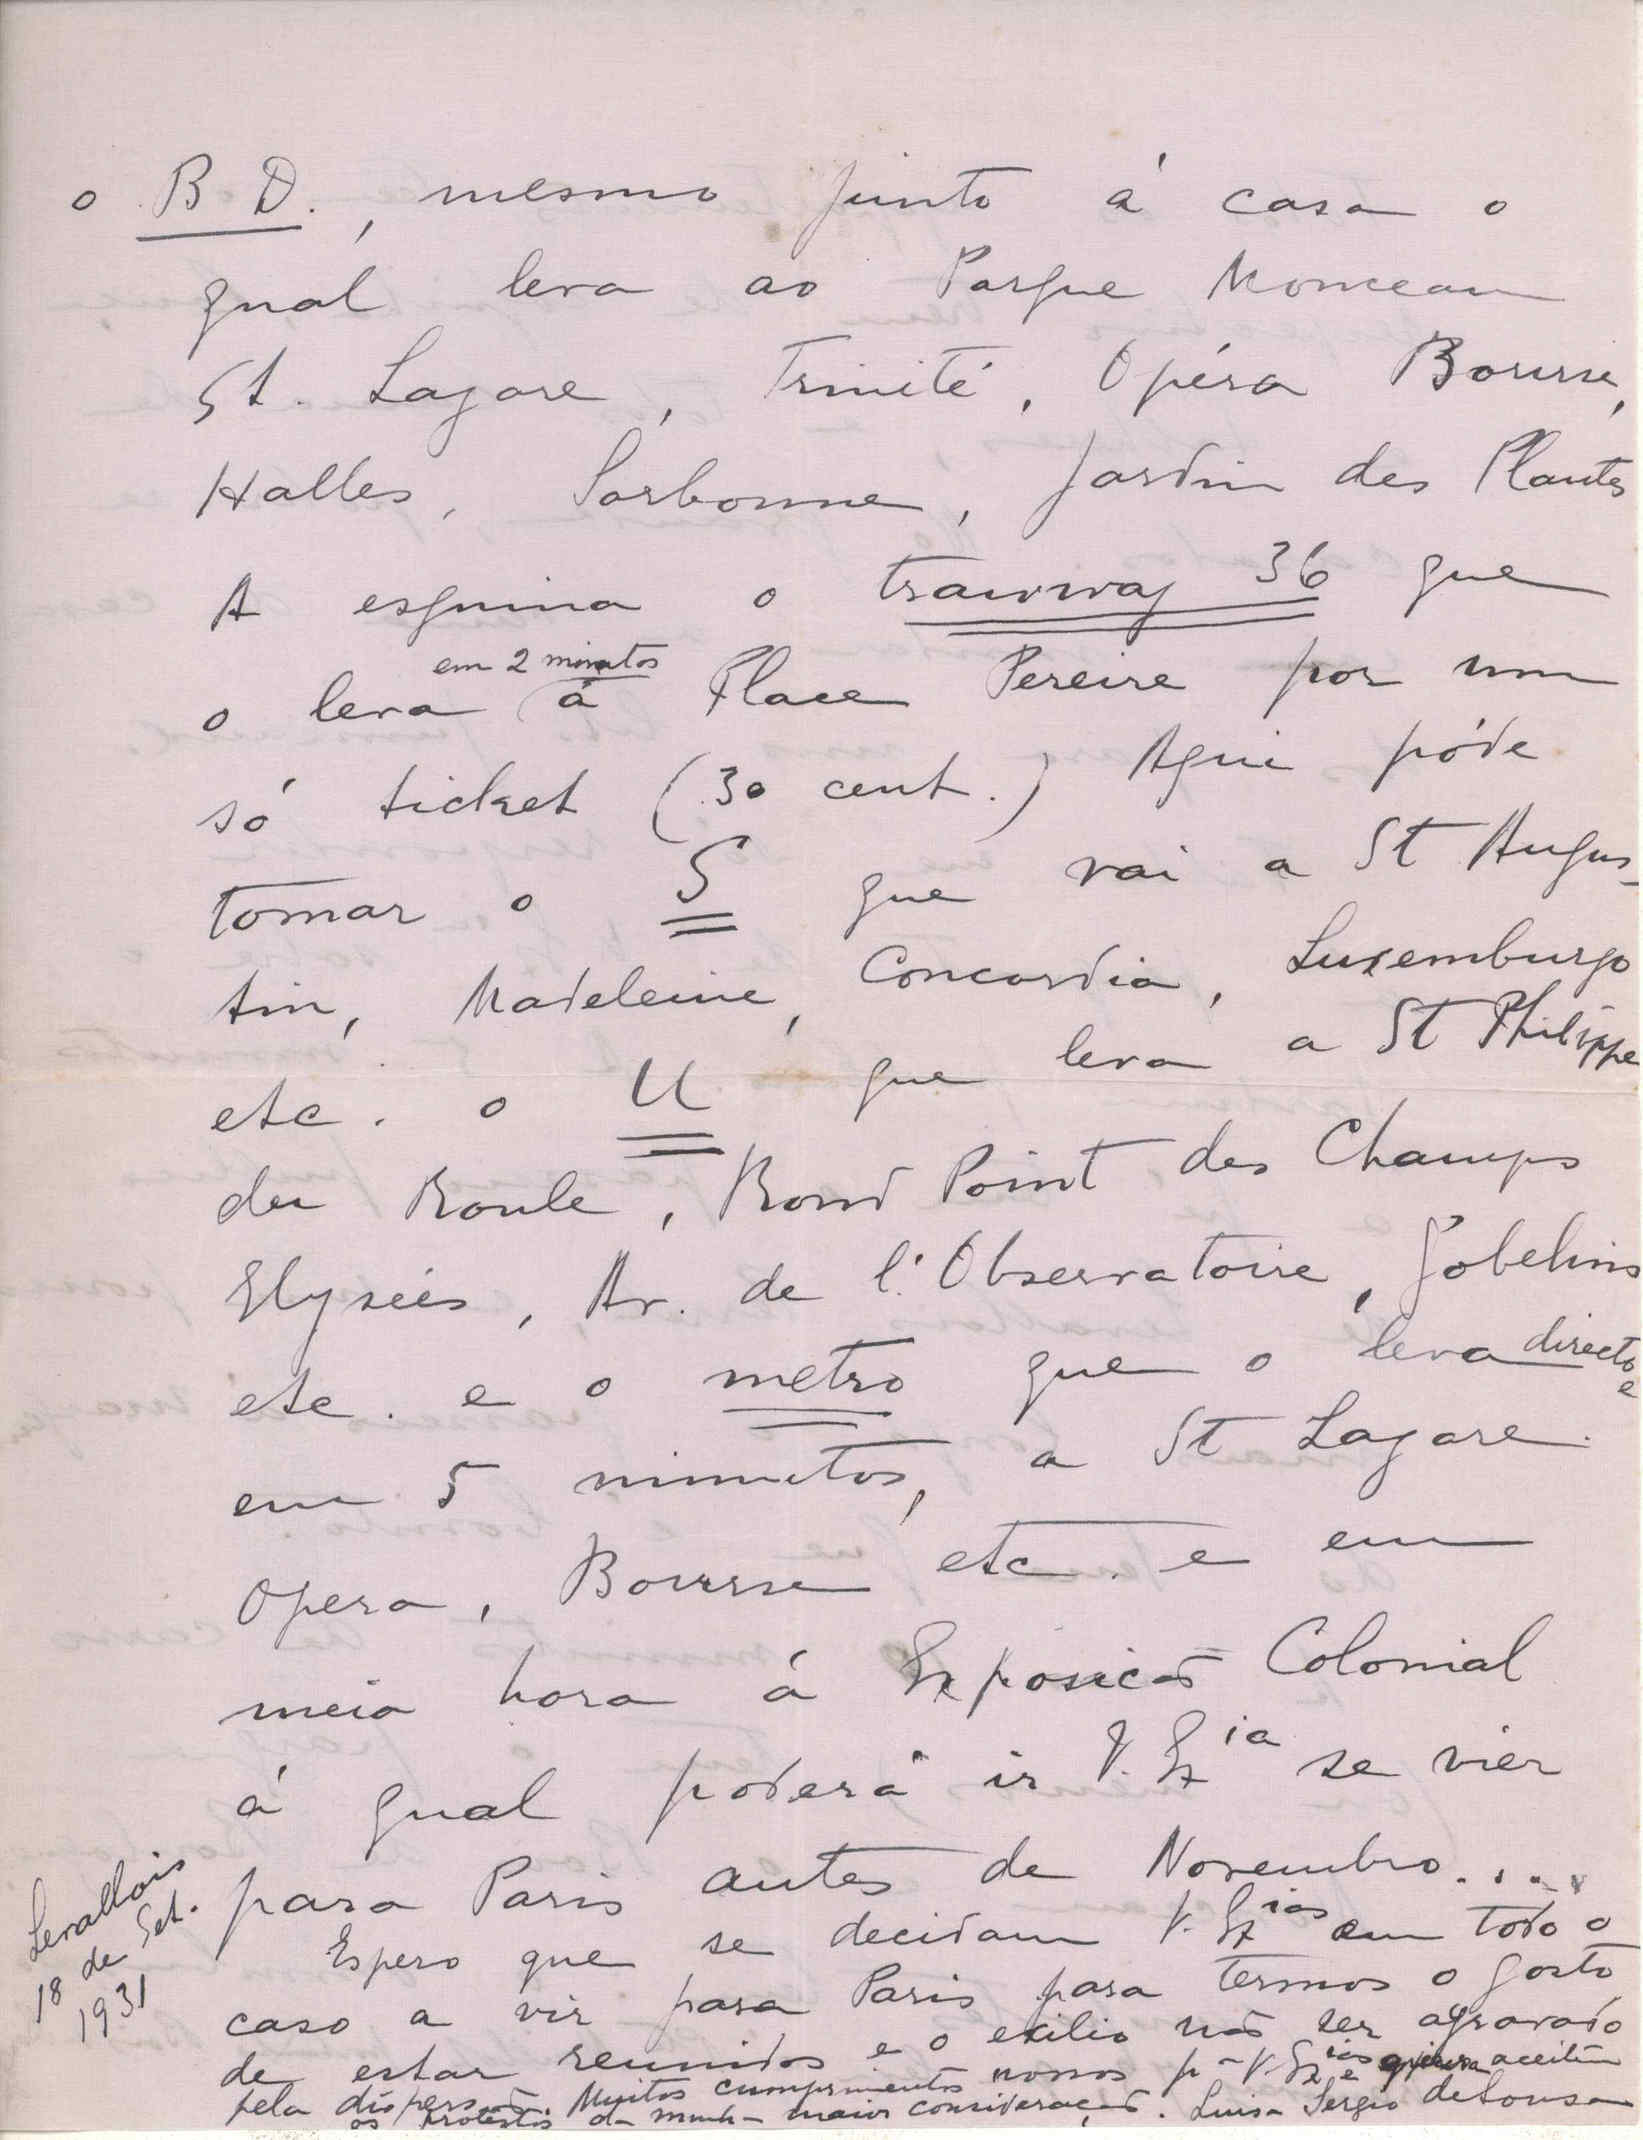 o B D., mesmo junto á casa o
qual leva ao Parque Monceau
St. Lazare, Trinité, Opéra Bourse,
Halles, Sorbonne, Jardin des Plantes
A esquina o tramway 36 que
em 2 minutos
o leva á Place Pereire por um
só ticket (30 cent.) Aqui póde
tomar o S que vai a St Augus-
tin, Madeleine, Concordia, Luxemburgo
etc. o U que leva a St Philippe
du Roule, Rond Point des Champs
Elyseés, Av. de l'Observatoire, Gobelins
etc. e o metro que o leva directo e
em 5 minutos, a St Lazare.
Opera, Bourse etc. e em
meia hora á Exposicão Colonial
á qual poderá ir V. Ex ia se vier
para Paris antes de Novembro....
Espero que se decidam V. Ex ias em todo o
caso a vir para Paris para termos o gosto
de estar reunidos e o exilio não ser agravado
pela dispersão. Muitos cumprimentos nossos pª V. Ex ias e aceitem
os protestos da minha maior consideração. Luisa Sergio de Sousa
Levallois
18 de Set.
1931